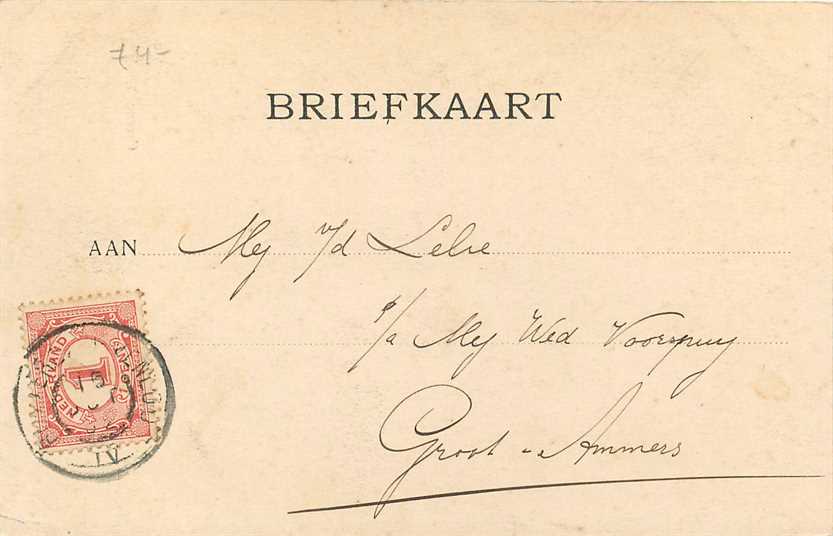 74-
BRIEFKAART
AAN Mej v/d Lelie
p/a Mej Wed Voorspuy
Groot-Ammers
NEDERLAND
1
CENT
IV